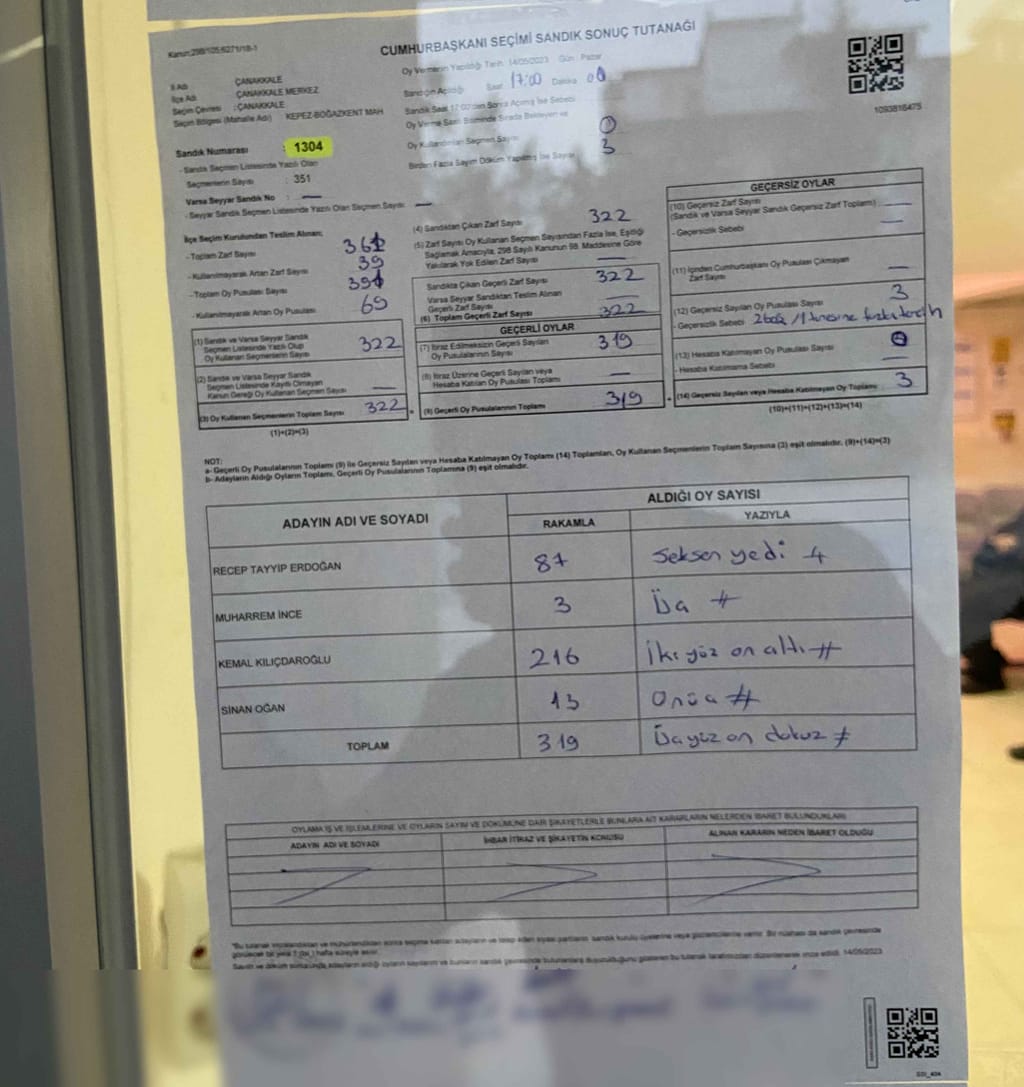 Kanun:298/105;6271/18-1
CUMHURBAŞKANI SEÇİMİ SANDIK SONUÇ TUTANAĞI
Oy Vermenin Yapıldığı Tarih 14/05/2023 Gün : Pazar
İl Adı ÇANAKKALE
İlçe Adı ÇANAKKALE MERKEZ
Seçim Çevresi : ÇANAKKALE
Seçim Bölgesi (Mahalle Adı) KEPEZ-BOĞAZKENT MAH
Sandığın Açıldığı Saat 17:00 Dakika 00
Sandık Saat 17:00'den Sonra Açılmış İse Sebebi
Oy Verme Saati Bitiminde Sırada Bekleyen ve
Oy Kullandırılan Seçmen Sayısı 0
Birden Fazla Sayım Döküm Yapılmış İse Sayısı 3
1093816475
Sandık Numarası : 1304
- Sandık Seçmen Listesinde Yazılı Olan
Seçmenlerin Sayısı : 351
Varsa Seyyar Sandık No : —
- Seyyar Sandık Seçmen Listesinde Yazılı Olan Seçmen Sayısı —
İlçe Seçim Kurulundan Teslim Alınan;
- Toplam Zarf Sayısı
- Kullanılmayarak Artan Zarf Sayısı 39
- Toplam Oy Pusulası Sayısı
- Kullanılmayarak Artan Oy Pusulası 69
(1) Sandık ve Varsa Seyyar Sandık
Seçmen Listesinde Yazılı Olup
Oy Kullanan Seçmenlerin Sayısı 322
(2) Sandık ve Varsa Seyyar Sandık
Seçmen Listesinde Kayıtlı Olmayan
Kanun Gereği Oy Kullanan Seçmen Sayısı —
(3) Oy Kullanan Seçmenlerin Toplam Sayısı 322
(1)+(2)=(3)
(4) Sandıktan Çıkan Zarf Sayısı 322
(5) Zarf Sayısı Oy Kullanan Seçmen Sayısından Fazla İse, Eşitliği
Sağlamak Amacıyla, 298 Sayılı Kanunun 98. Maddesine Göre
Yakılarak Yok Edilen Zarf Sayısı —
Sandıkta Çıkan Geçerli Zarf Sayısı 322
Varsa Seyyar Sandıktan Teslim Alınan
Geçerli Zarf Sayısı —
(6) Toplam Geçerli Zarf Sayısı 322
GEÇERLİ OYLAR
(7) İtiraz Edilmeksizin Geçerli Sayılan
Oy Pusulasının Sayısı 319
(8) İtiraz Üzerine Geçerli Sayılan veya
Hesaba Katılan Oy Pusulası Toplamı —
(9) Geçerli Oy Pusulalarının Toplamı 319
GEÇERSİZ OYLAR
(10) Geçersiz Zarf Sayısı
(Sandık ve Varsa Seyyar Sandık Geçersiz Zarf Toplamı) —
- Geçersizlik Sebebi —
(11) İçinden Cumhurbaşkanı Oy Pusulası Çıkmayan
Zarf Sayısı —
(12) Geçersiz Sayılan Oy Pusulası Sayısı 3
- Geçersizlik Sebebi 2 boş / 1 tanesine fazla tercih
(13) Hesaba Katılmayan Oy Pusulası Sayısı
- Hesaba Katılmama Sebebi —
(14) Geçersiz Sayılan veya Hesaba Katılmayan Oy Toplamı 3
(10)+(11)+(12)+(13)=(14)
NOT:
a- Geçerli Oy Pusulalarının Toplamı (9) ile Geçersiz Sayılan veya Hesaba Katılmayan Oy Toplamı (14) Toplamları, Oy Kullanan Seçmenlerin Toplam Sayısına (3) eşit olmalıdır. (9)+(14)=(3)
b- Adayların Aldığı Oyların Toplamı, Geçerli Oy Pusulalarının Toplamına (9) eşit olmalıdır.
ADAYIN ADI VE SOYADI ALDIĞI OY SAYISI
RAKAMLA YAZIYLA
RECEP TAYYİP ERDOĞAN 87 Seksen yedi #
MUHARREM İNCE 3 Üç #
KEMAL KILIÇDAROĞLU 216 İki yüz on altı #
SİNAN OĞAN 13 Onüç #
TOPLAM 319 Üçyüz on dokuz #
OYLAMA İŞ VE İŞLEMLERİNE VE OYLARIN SAYIM VE DÖKÜMÜNE DAİR ŞİKAYETLERLE BUNLARA AİT KARARLARIN NELERDEN İBARET BULUNDUKLARI
ADAYIN ADI VE SOYADI İHBAR İTİRAZ VE ŞİKAYETİN KONUSU ALINAN KARARIN NEDEN İBARET OLDUĞU